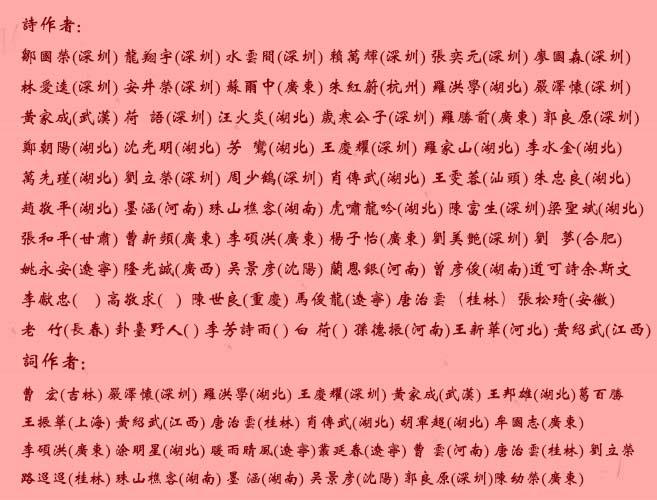 詩作者：
鄒國榮(深圳) 龍翔宇(深圳) 水雲間(深圳) 賴萬輝(深圳) 張奕元(深圳) 廖國森(深圳)
林愛遠(深圳) 安井榮(深圳) 蘇雨中(廣東) 朱紅蔚(杭州) 羅洪學(湖北) 嚴澤懷(深圳)
黃家成(武漢) 荷 語(深圳) 汪火炎(湖北) 歲寒公子(深圳) 羅勝前(廣東) 郭良原(深圳)
鄭朝陽(湖北) 沈光明(湖北) 芳 鸞(湖北) 王慶耀(深圳) 羅家山(湖北) 李水金(湖北)
萬先瑾(湖北) 劉立榮(深圳) 周少鶴(深圳) 肖傳武(湖北) 王雯蓉(汕頭) 朱忠良(湖北)
趙敬平(湖北) 墨涵(河南) 珠山樵客(湖南) 虎嘯龍吟(湖北) 陳富生(深圳)梁聖斌(湖北)
張和平(甘肅) 曹新頻(廣東) 李碩洪(廣東) 楊子怡(廣東) 劉美艷(深圳) 劉 夢(合肥)
姚永安(遼寧) 隆光誠(廣西) 吴景彥(沈陽) 蘭恩銀(河南) 曾彥俊(湖南)道可詩余斯文
李獻忠( ) 高敬求( ) 陳世良(重慶) 馬俊龍(遼寧) 唐治雲（桂林）張松琦(安徽)
老 竹(長春) 卦臺野人( ) 李芳詩雨( ) 白 荷( ) 孫德振(河南)王新華(河北) 黃紹武(江西)
詞作者：
曹 宏(吉林) 嚴澤懷(深圳) 羅洪學(湖北) 王慶耀(深圳) 黃家成(武漢) 王邦雄(湖北)葛百勝
王振華(上海) 黃紹武(江西) 唐治雲(桂林) 肖傳武(湖北) 胡軍超(湖北) 牟國志(廣東)
李碩洪(廣東) 涂明星(湖北) 暖雨晴風(遼寧)叢延春(遼寧) 曹 雲(河南) 唐治雲(桂林) 劉立榮
路迢迢(桂林) 珠山樵客(湖南) 墨 涵(湖南) 吴景彥(沈陽) 郭良原(深圳)陳幼榮(廣東)